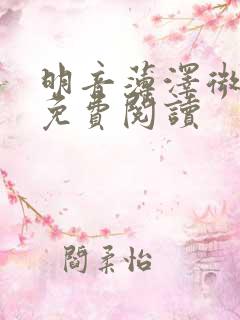 明音薄澤微
免費閱讀
閻柔怡